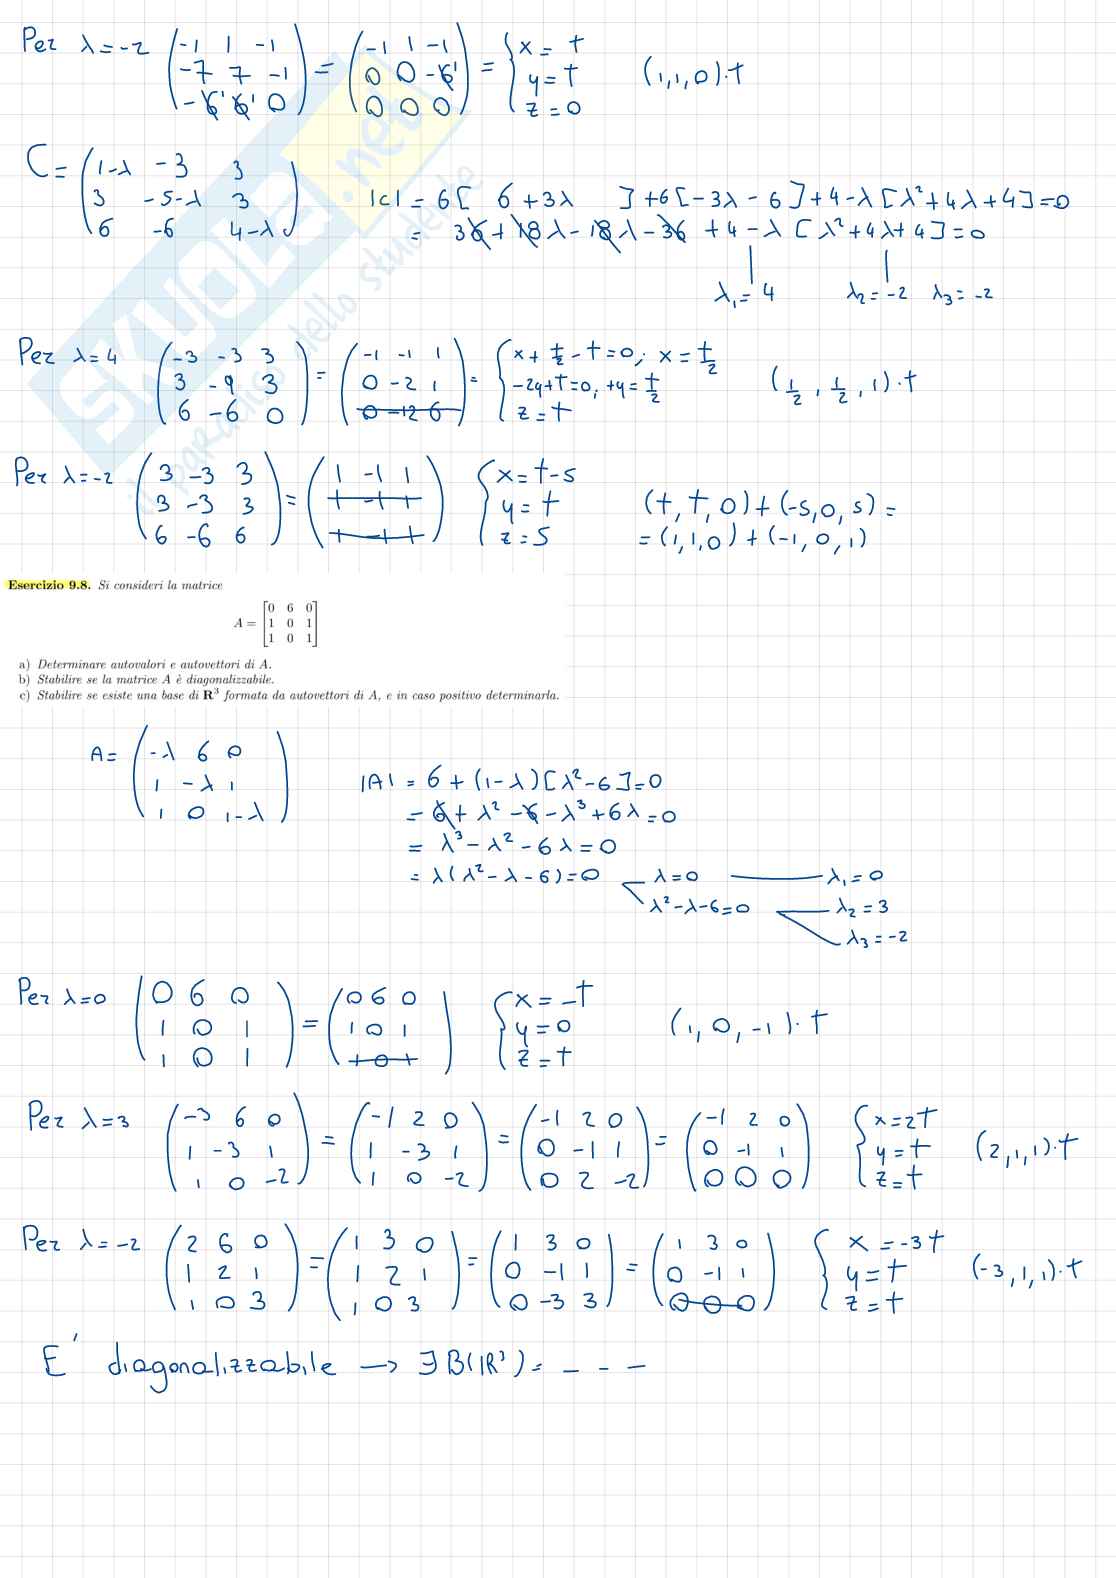 Per λ=-2 (-1 1 -1 / -7 7 -1 / -6' 6' 0) = (-1 1 -1 / 0 0 -6' / 0 0 0) = { x = t / y = t / z = 0 (1,1,0)·t
C = (1-λ -3 3 / 3 -5-λ 3 / 6 -6 4-λ) |C| = 6[ 6+3λ ]+6[-3λ-6]+4-λ[λ²+4λ+4]=0
= 36+18λ-18λ-36+4-λ[λ²+4λ+4]=0
λ₁=4 λ₂=-2 λ₃=-2
Per λ=4 (-3 -3 3 / 3 -9 3 / 6 -6 0) = (-1 -1 1 / 0 -2 1 / 0 -12 6) = { x+t/2-t=0; x=t/2 / -2y+t=0, +y=t/2 / z=t (1/2, 1/2, 1)·t
Per λ=-2 (3 -3 3 / 3 -3 3 / 6 -6 6) = (1 -1 1 / 1 -1 1 / 1 -1 1) { x=t-s / y=t / z=s (t,t,0)+(-s,0,s)=
=(1,1,0)+(-1,0,1)
SKUOLA.net
il paradiso dello studente
Esercizio 9.8. Si consideri la matrice
A = [0 6 0 / 1 0 1 / 1 0 1]
a) Determinare autovalori e autovettori di A.
b) Stabilire se la matrice A è diagonalizzabile.
c) Stabilire se esiste una base di R³ formata da autovettori di A, e in caso positivo determinarla.
A= (-λ 6 0 / 1 -λ 1 / 1 0 1-λ) |A| = 6+(1-λ)[λ²-6]=0
= 6+λ²-6-λ³+6λ=0
= λ³-λ²-6λ=0
= λ(λ²-λ-6)=0 λ=0 λ₁=0
λ²-λ-6=0 λ₂=3
λ₃=-2
Per λ=0 (0 6 0 / 1 0 1 / 1 0 1) = (0 6 0 / 1 0 1 / 1 0 1) { x=-t / y=0 / z=t (1,0,-1)·t
Per λ=3 (-3 6 0 / 1 -3 1 / 1 0 -2) = (-1 2 0 / 1 -3 1 / 1 0 -2) = (-1 2 0 / 0 -1 1 / 0 2 -2) = (-1 2 0 / 0 -1 1 / 0 0 0) { x=2t / y=t / z=t (2,1,1)·t
Per λ=-2 (2 6 0 / 1 2 1 / 1 0 3) = (1 3 0 / 1 2 1 / 1 0 3) = (1 3 0 / 0 -1 1 / 0 -3 3) = (1 3 0 / 0 -1 1 / 0 0 0) { x=-3t / y=t / z=t (-3,1,1)·t
E' diagonalizzabile → ∃ B(ℝ³)= _ _ _